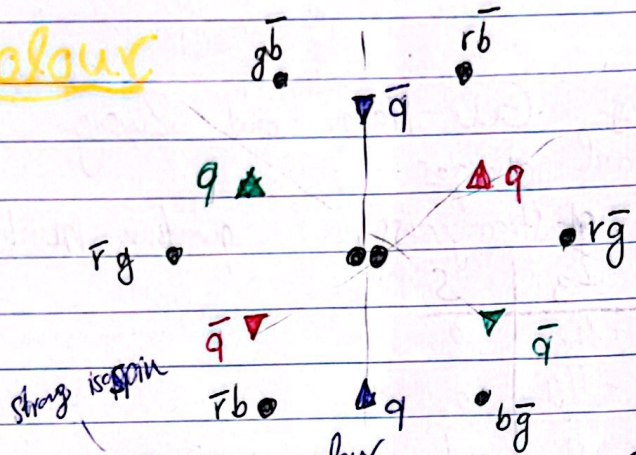 gb̅ rb̅
q̅
q q
r̅g rg̅
q̅ q̅
strong isospin
r̅b q bg̅